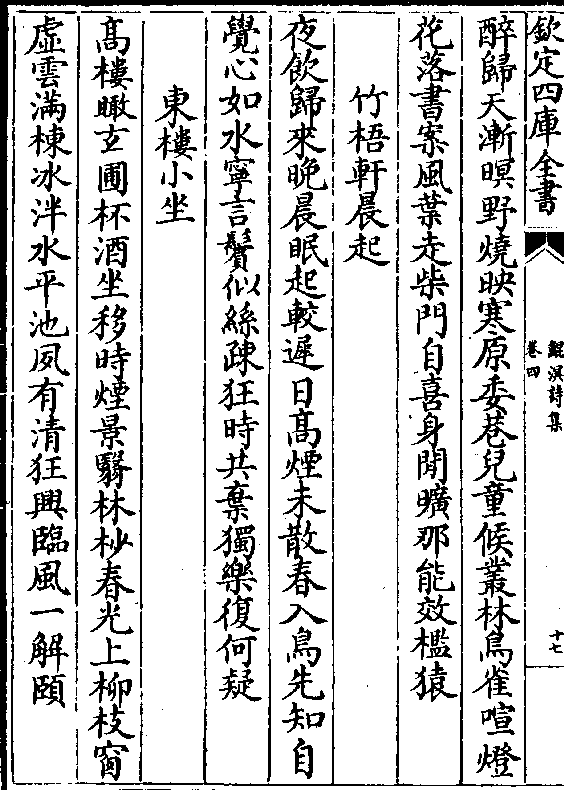 欽定四庫全書
鯤溟詩集
卷四
十七
醉歸天漸暝野燒映寒原委巷兒童候叢林鳥雀喧燈
花落書案風葉走柴門自喜身閒曠那能效檻猿
竹梧軒晨起
夜飲歸來晚晨眠起較遲日高煙未散春入鳥先知自
覺心如水寧言鬢似絲疎狂時共棄獨樂復何疑
東樓小坐
高樓瞰玄圃杯酒坐移時煙景翳林杪春光上柳枝窗
虛雲滿棟冰泮水平池夙有清狂興臨風一解頤